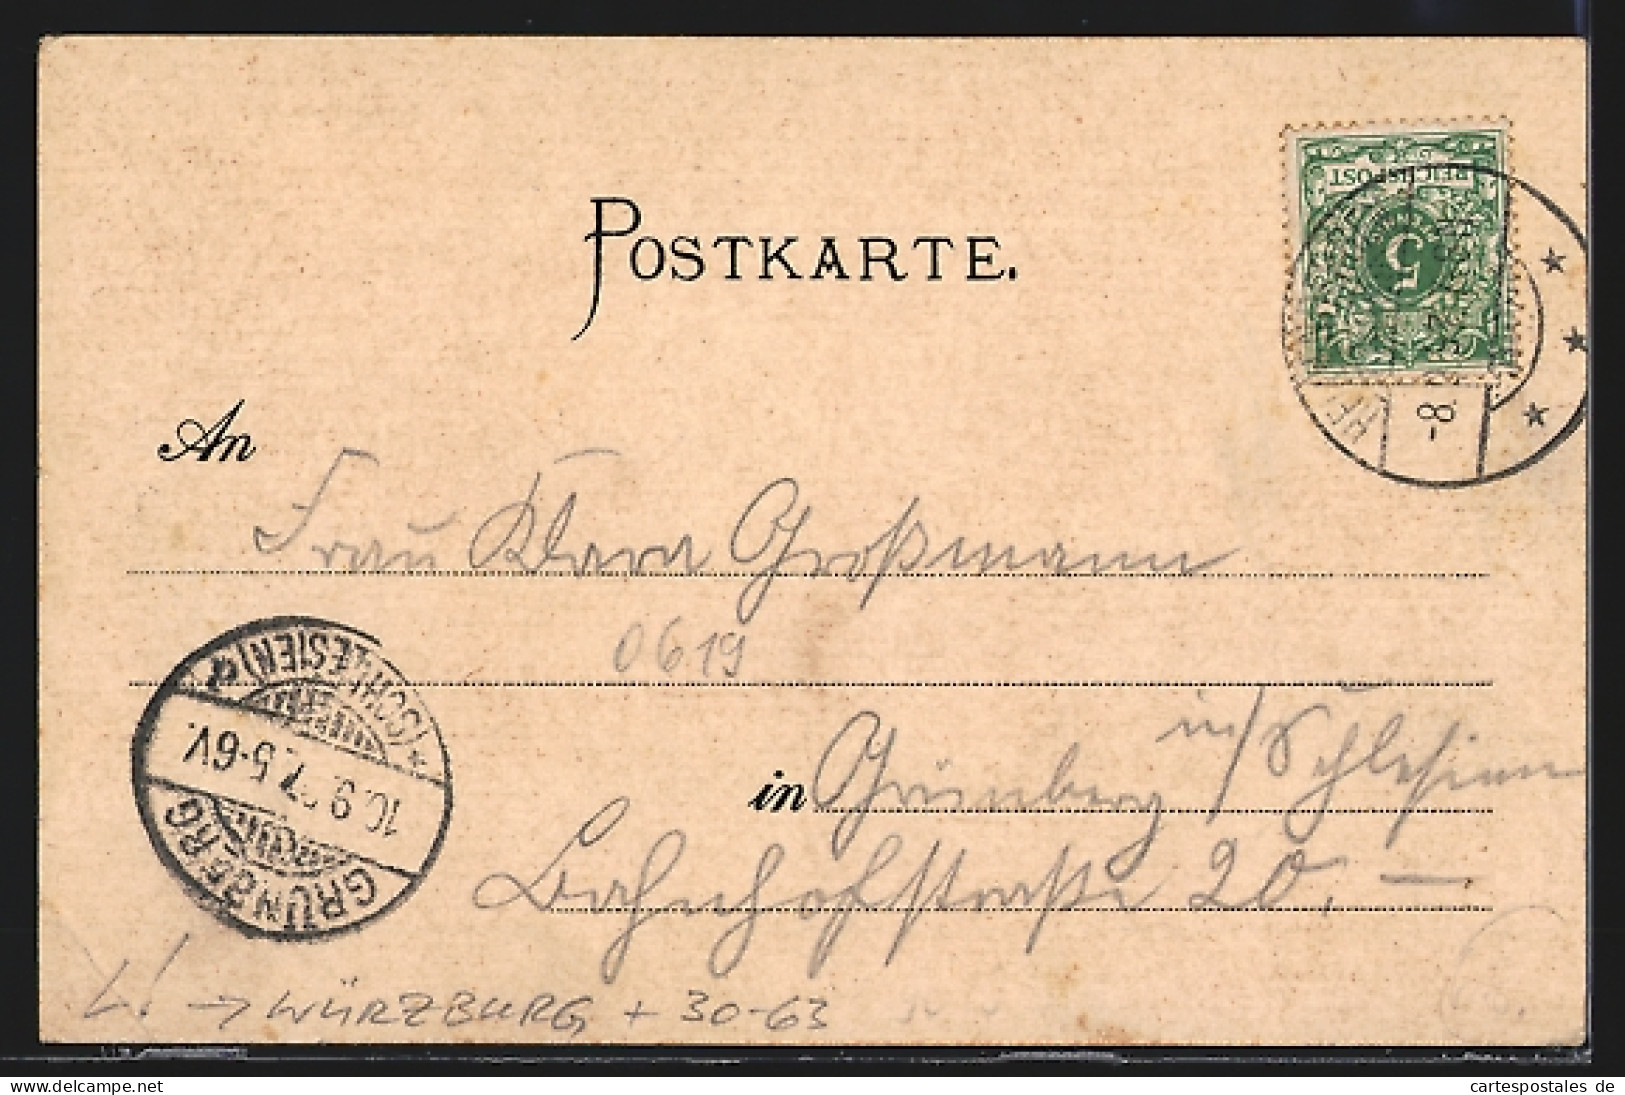 POSTKARTE.
REICHSPOST
5
-8.
An
Frau Klara Großmann
0619
in Grünberg in/Schlesien
Bahnhofstraße 20. —
GRÜNBERG
(SCHLESIEN)
10.9.97. 5-6V.
L! → WÜRZBURG + 30-63
www.delcampe.net
cartespostales de